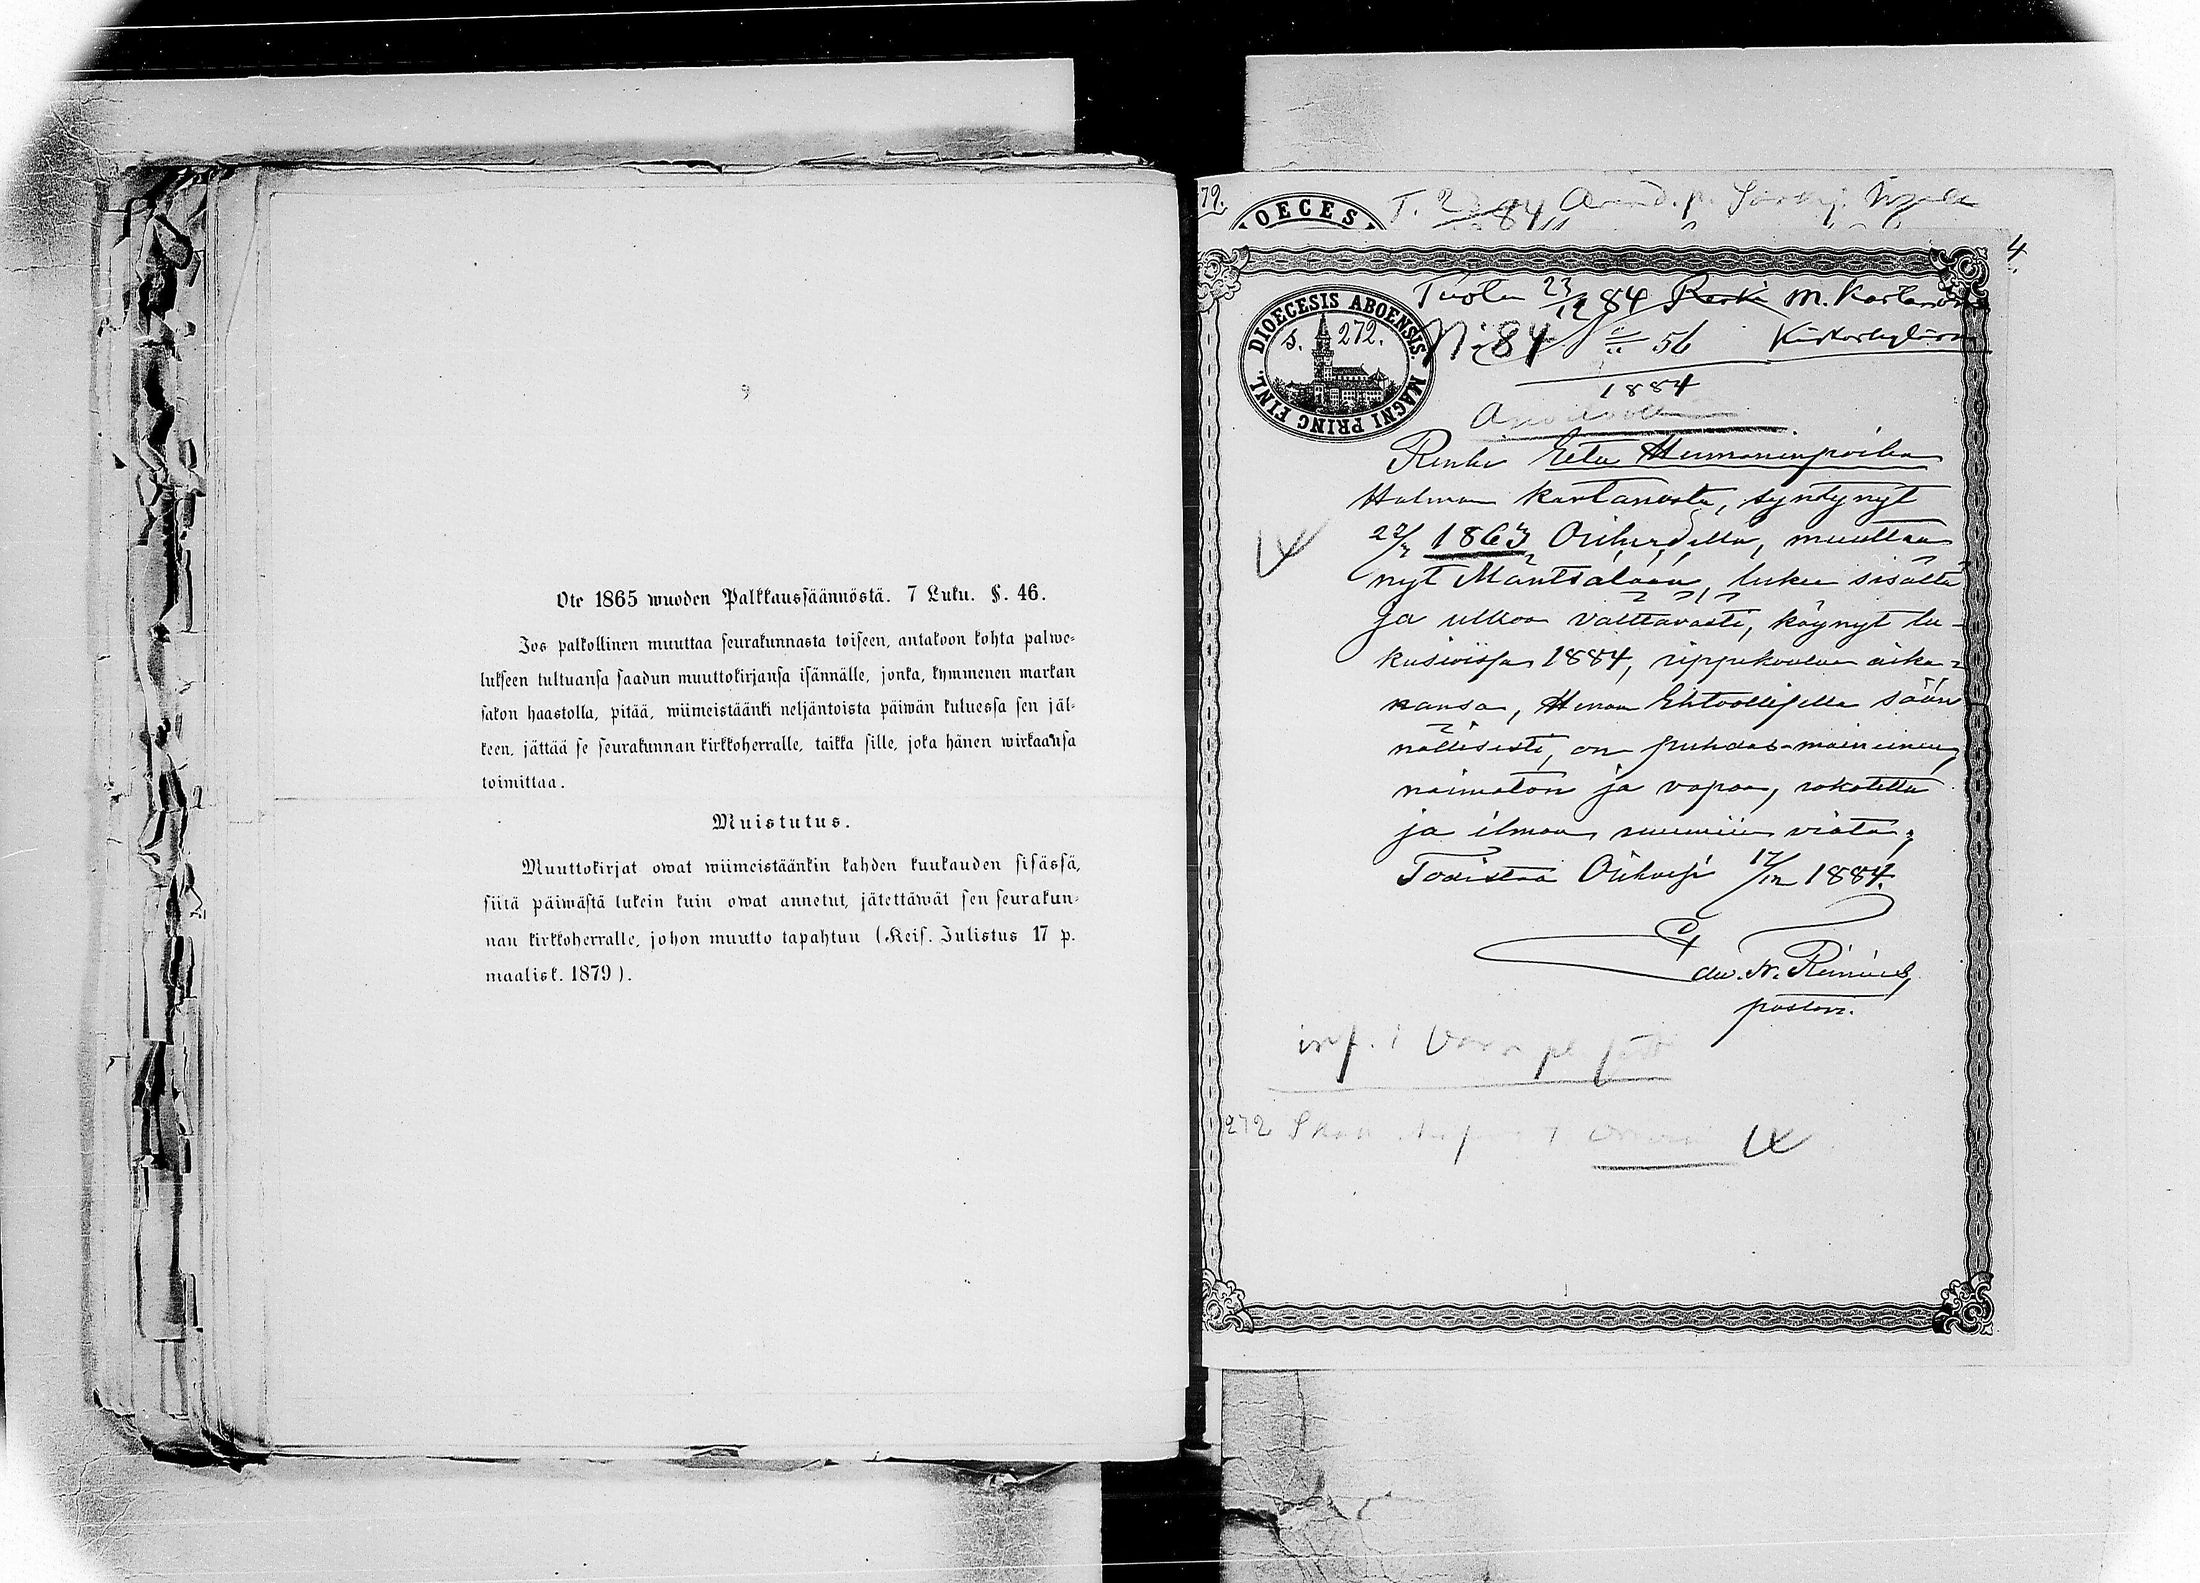 Ote 1865 wuoden Palkkaussäännöstä. 7 Luku. §. 46.
Jos palkollinen muuttaa seurakunnasta toiseen, antakoon kohta palwe-
lukseen tultuansa saadun muuttokirjansa isännälle, jonka, kymmenen markan
sakon haastolla, pitää, wiimeistäänki neljäntoista päiwän kuluessa sen jäl-
keen, jättää se seurakunnan kirkkoherralle, taikka sille, joka hänen wirkaansa
toimittaa.
Muistutus.
Muuttokirjat owat wiimeistäänkin kahden kuukauden sisässä,
siitä päiwästä lukein kuin owat annetut, jätettäwät sen seurakun-
nan kirkkoherralle, johon muutto tapahtuu (Keis. Julistus 17 p.
maalisk. 1879).
79.
OECES
T. 84
4.
Tuotu 23/12 84 M. Kartano
DIOECESIS ABOENSIS. MAGNI PRINC FINL.
s. 272.
N:o 84 56
1884
Renki Eetu Hermaninpoika
Kartanosta, syntynyt
22/ 1863 Orihvedellä, muuttaa
nyt Mäntsälään, lukee sisältä
ja ulkoa välttävästi, käynyt lu-
kusioissa 1884, rippikoulun aika-
nansa, Herran Ehtoollisella sään
nöllisesti, on puhdas-maineinen,
naimaton ja vapaa, rokotettu
ja ilman ruumiin viata;
Todistaa Orihvesi 17/12 1884.
Edv. N. Reinius,
pastori.
inf. i
272